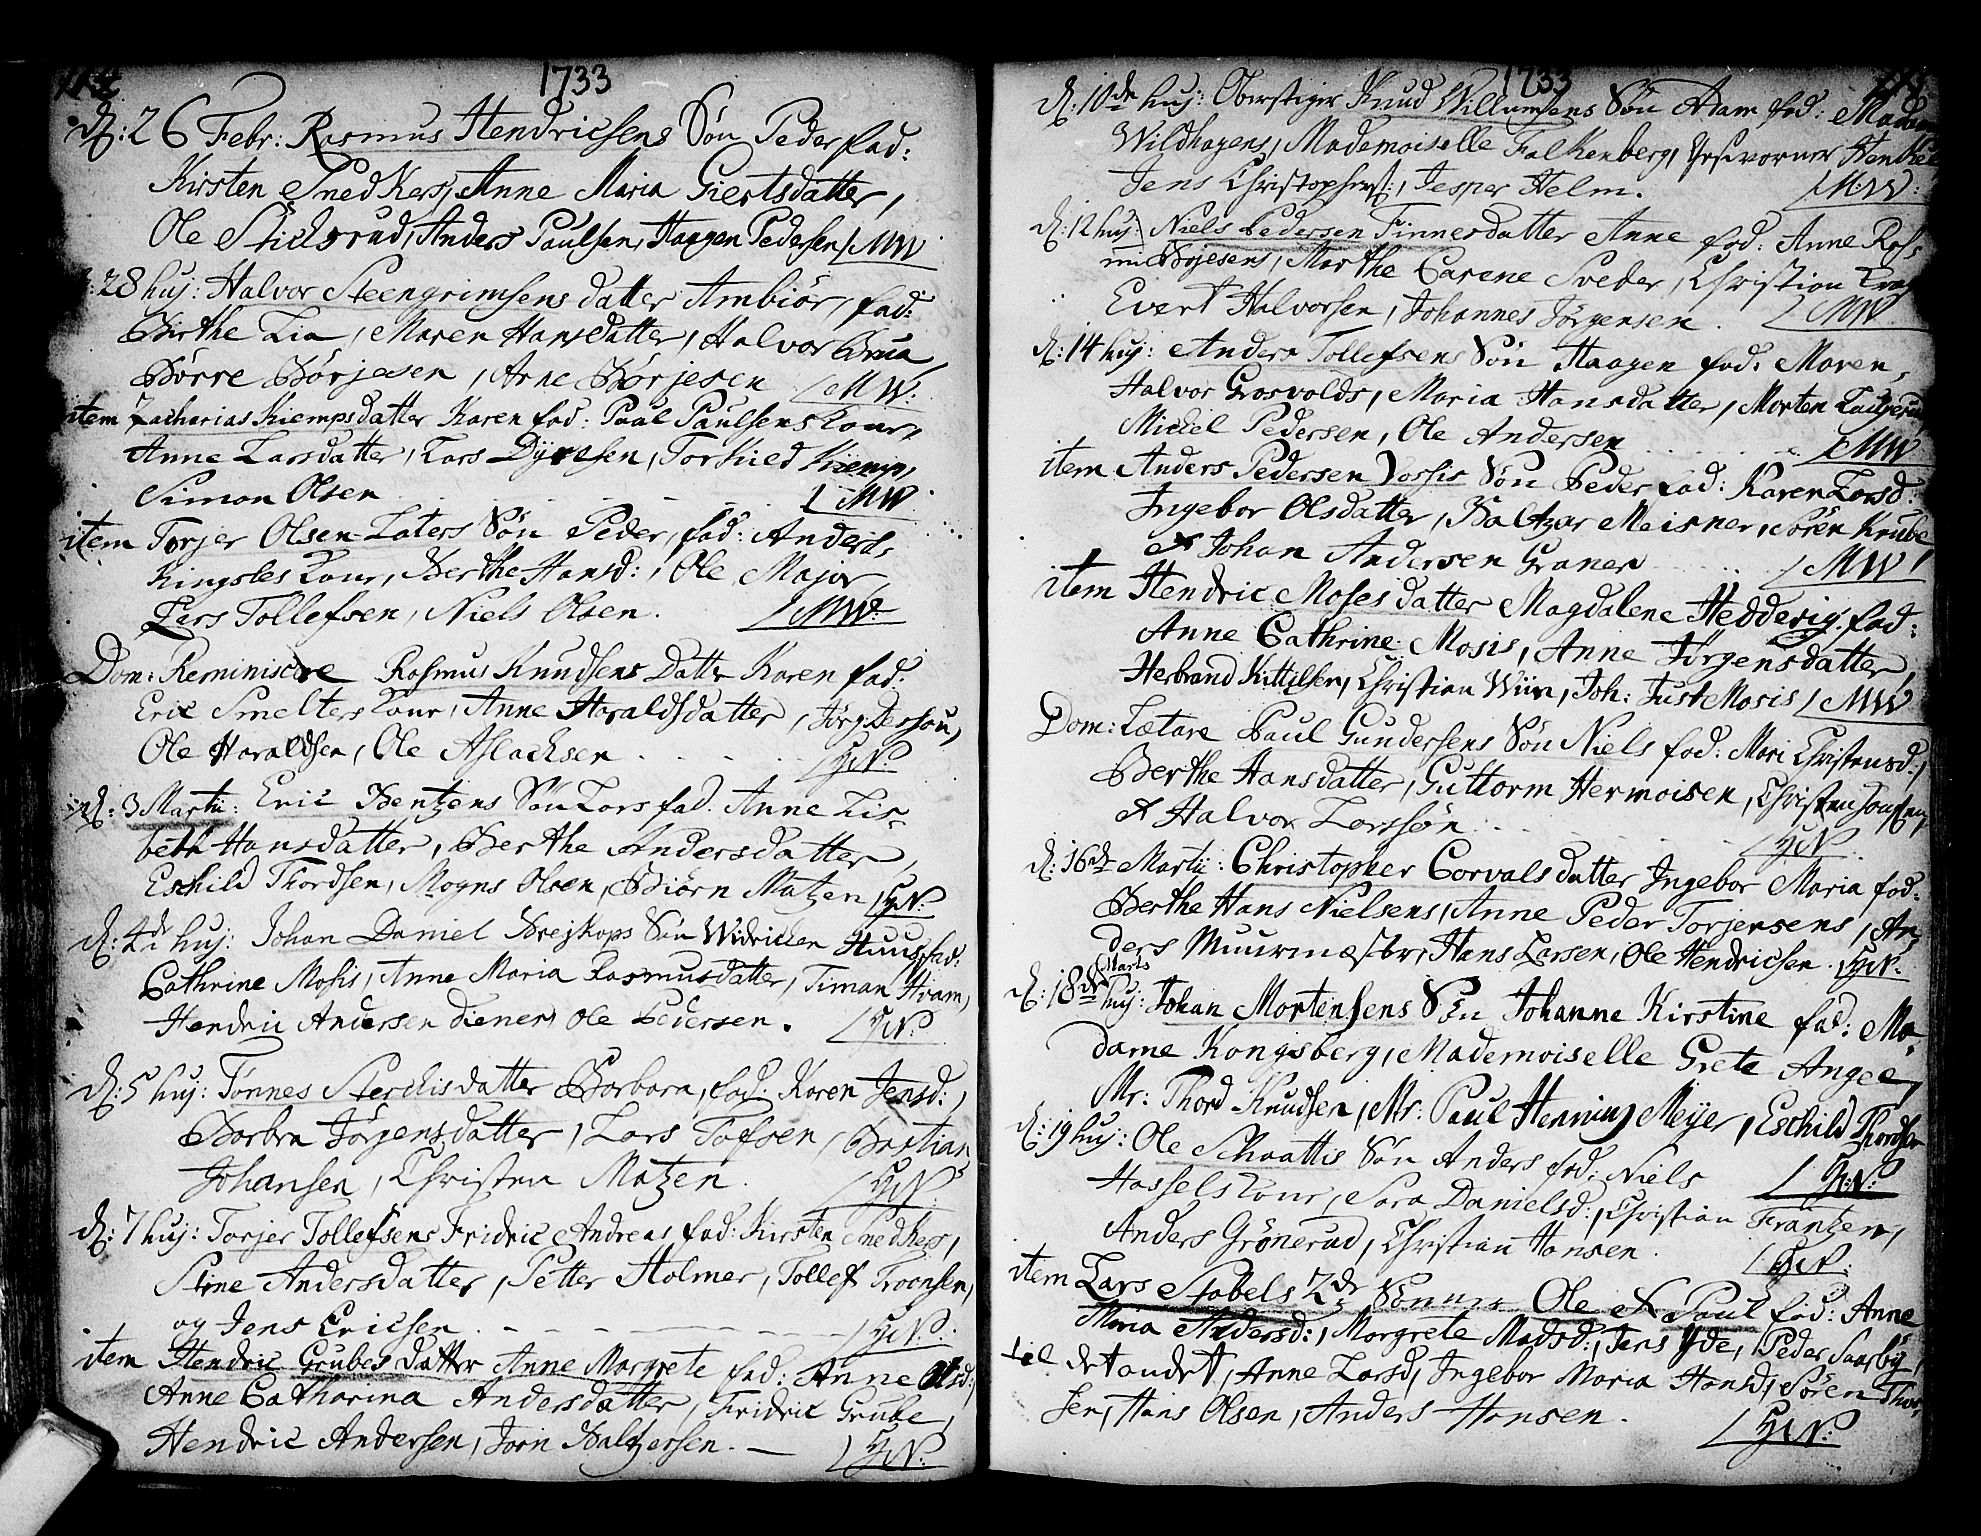 114
1733
d: 26 Febr: Rasmus Hendricsens Søn Peder fad:
Kirsten Snedkers, Anne Maria Giertsdatter,
Ole Stichsrud, Anders Paulsen, Haagen Pedersen / MW
d: 28 huj: Halvor Steengrimsens datter Ambiør, fad:
Birthe Lia, Maren Hansdatter, Halvor Brua
Børre Børjesen, Arne Børjesen / MW:
item Zacharias Kiempsdatter Karen fad: Paul Paulsens Kone,
Anne Larsdatter, Lars Dyresen, Torkild Kiemp,
Simon Olsen / MW
item Torjer Olsen Laters Søn Peder, fad: Anders
Kingsles Kone, Berthe Hansd:, Ole Major
Lars Tollefsen, Niels Olsen. / MW:
Dom: Reminiscere Rasmus Knudsens Datter Karen fad:
Eric Smelters Kone, Anne Haraldsdatter, Jørg Dessou,
Ole Haraldsen, Ole Aslachsen / HN
d: 3 Martii: Eric Bentzens Søn Lars fad: Anne Lis-
beth Hansdatter, Berthe Andersdatter,
Eschild Thordsen, Mogns Olsen, Biørn Matzen / HN:
d: 4de huj: Johan Daniel Brejkops Søn Widrichen Huus, fad:
Cathrine Mosis, Anne Maria Rasmusdatter, Timan Hvam,
Hendric Andersen Diener, Ole Pedersen. / HN:
d: 5 huj: Tønnes Sterchisdatter Barbara, fad: Karen Jensd:,
Barbra Jørgensdatter, Lars Tofsen, Bastian
Johansen, Christen Matzen. / HN
d: 7 huj: Torjer Tollefsens Fridric Andreas fad: Kirsten Snedkers,
Stine Andersdatter, Petter Holmer, Tollef Troensen,
og Jens Ericsen / HN:
item Hendric Grubes datter Anne Margrete fad: Anne Olsd:,
Anne Catharina Andersdatter, Fridric Grube,
Hendric Andersen, Jørn Baltzersen. — / HN:
1733
115
d: 10de huj: Oberstiger Knud Willumsens Søn Adam fad: Madam
Wildhagens, Mademoiselle Falkenberg, Geschworner Henkel
Jens Christophers:, Jesper Helm. / M:W:
d: 12 huj: Niels Pedersen Finnes datter Anne fad: Anne Ros-
mi Bøjesens, Marthe Carene Sveder, Christian Krag
Evert Halvorsen, Johannes Jørgensen. / MW
d: 14 huj: Anders Tollefsens Søn Haagen fad: Maren
Halvor Grosvolds, Maria Hansdatter, Morten
Michel Pedersen, Ole Andersen / MW
item Anders Pedersen Vossis Søn Peder fad: Karen Larsd:
Ingebor Olsdatter, Baltzar Meisner, Søren Krube
& Johan Andersen Graner / MW
item Hendric Moses datter Magdalene Hedderig fad:
Anne Cathrine Mosis, Anne Jørgensdatter,
Herbrand Kittilsen, Christian Wiin, Joh: Just Mosis / MW
Dom: Lætare Paul Gundersens Søn Niels fad: Mari Christensd:,
Berthe Hansdatter, Guttorm Hermoisen, Christen Jonsen,
& Halvor Larssøn / HN
d: 16de Martii: Christopher Corvals datter Ingebor Maria fad:
Berthe Hans Nielsens, Anne Peder Torjersens, An-
ders Muurmæster, Hans Larsen, Ole Hendricsen. / HN:
Marts
d: 18de huj: Johan Mortensens Søn Johanne Kirstine fad: Ma-
dame Kongsberg, Mademoiselle Grete Angel,
Mr: Thord Knudsen, Mr: Paul Henning Meyer, Eschild Thordsen
d: 19 huj: Ole Schaattis Søn Anders fad: Niels / HN:
Hassels Kone, Sara Danielsd:, Christian Frantzen,
Anders Grönerud, Christian Hansen. / HN:
item Lars Stabels 2de Sønner Ole & Paul fad: Anne
Maria Andersd:, Margrete Madsd:, Jens Yde, Peder Saarby,
Til det andet, Anne Larsd, Ingebor Maria Hansd, Søren Thor-
sen, Hans Olsen, Anders Hansen. / HN: